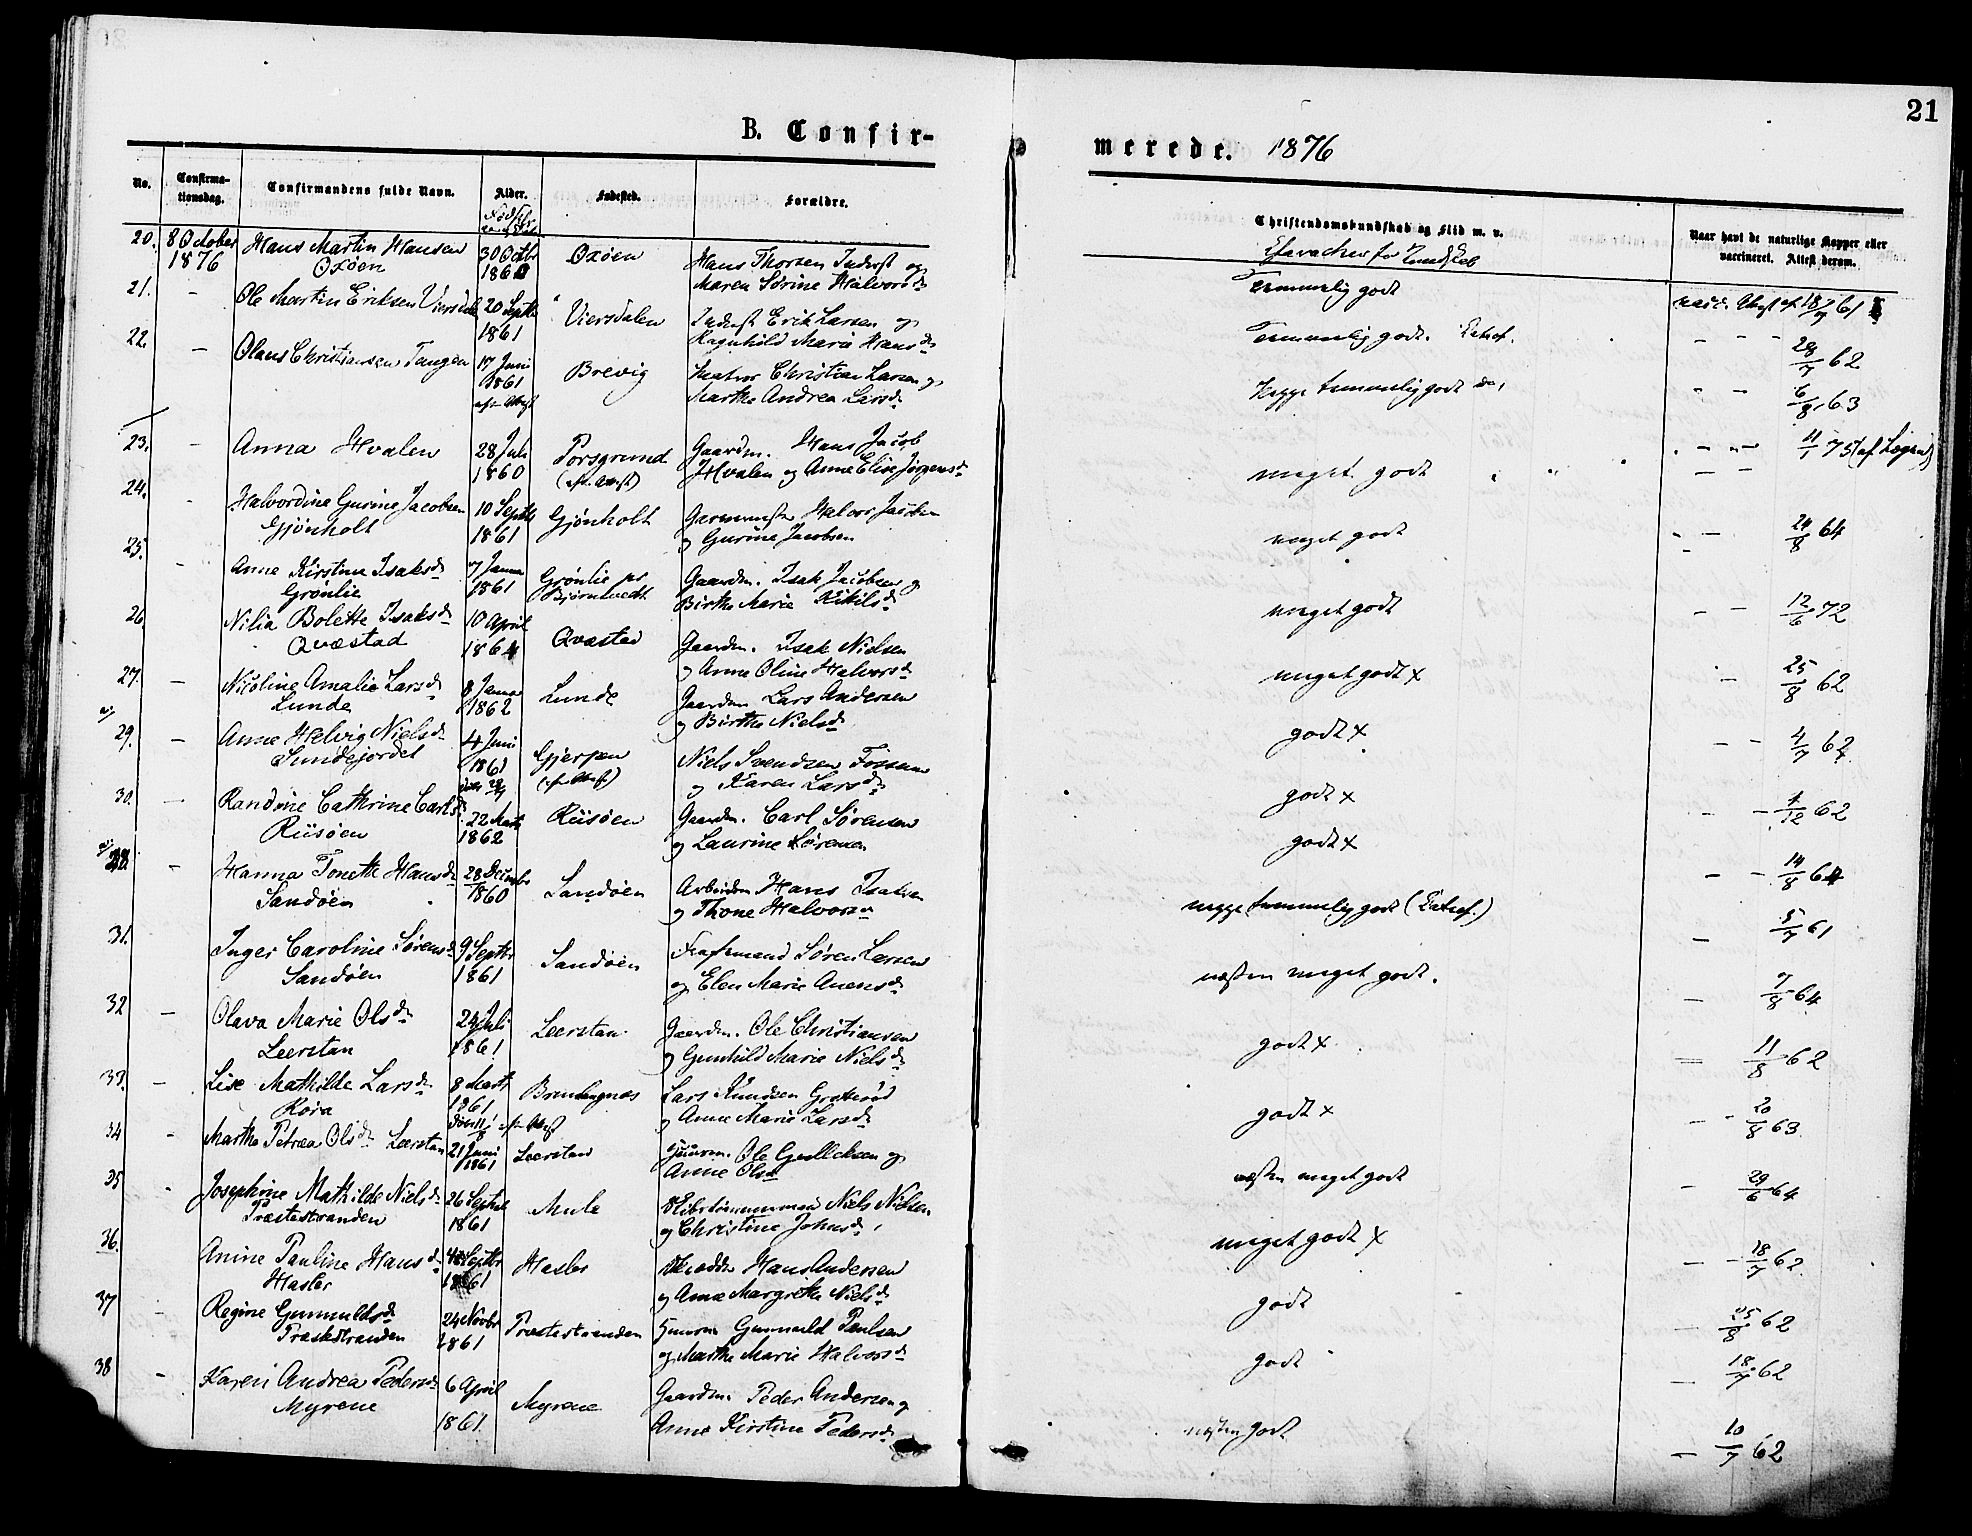 21
B. Confir-
merede. 1876
No.
Confirma-
tionsdag.
Confirmandens fulde Navn.
Alder.
Fødested.
Forældre.
Christendomskundskab og Flid m. v.
Naar havt de naturlige Kopper eller
vaccineret. Attest derom.
20. 8 October Hans Martin Hansen 30 Octbr Oxöen Hans Thorsen Inderst og
1876 Oxöen 1860 Maren Sörine Halvorsd
Temmelig godt 18/7 61
21. - Ole Martin Eriksen Viersdal 20 Septb Viersdalen Inderst Erik Larsen og
1861 Ragnhild Marie Hansd
Temmelig godt. - - - 28/7 62
22. - Olaus Christiansen Tangen 17 Juni Brevig Matros Christian Larsen og
1861 Marthe Andrea Larsd
efter Attest
temmelig godt - - 6/8 63
23. - Anna Hvalen 28 Juli Porsgrund Gaardm. Hans Jacob
1860 (eft. Attest) Hvalen og Anne Elise Jörgensd
meget godt 11/1 75
24. - Halvordine Gurine Jacobsen 10 Septb Gjönholt Halvor Jacobsen
Gjönholt 1861 og Gurine Jacobsen
meget godt - - 24/8 64
25. - Anne Kirstine Isaksd 7 Januar Grönlie
Grönlie 1861 Björntvedt
Gaardm. Isak Jacobsen og
Birthe Marie Kitilsd
meget godt - - 12/6 72
26. Nilia Bolette Isaksd 10 April Qvæstad Gaardm. Isak Nielsen
Qvæstad 1864 og Anne Oline Halvorsd
meget godt x - 25/8 62
27. - Nicoline Amalie Larsd 8 Januar Lunde Gaardm Lars Andersen
Lunde 1862 og Birthe Nielsd
godt x - - 4/7 62
29. - Anne Helvig Nielsd 4 Juni Gjerpen Niels Svendsen Fossum
Lundejordet 1861 (eft. Attest) og Karen Larsd
godt x - - 62
30. - Randine Cathrine Carlsd 22 Marts Riisöen Gaardm. Carl Sörensen
Riisöen 1862 og Laurine Sörensen
godt x - - 14/8 64
28. - Hanna Tonette Hansd 28 Decembr Sandöen Arbeidsm Hans Isaksen
Sandöen 1860 og Thone Halvorsen
temmelig godt - 5/7 61
31. Inger Caroline Sörensd 9 Septbr Sandöen Sören Larsen
Sandöen 1861 og Elen Marie Anensd
næsten meget godt. - 7/8 64
32 - Olava Marie Olsd 24 Juli Leerstan Gaardm. Ole Christiansen
Leerstan 1861 og Gunhild Marie Nielsd
godt x - 11/8 62
33. - Lise Mathilde Larsd 8 Marts Lars Knudsen
Röra 1861 og Anne Marie Larsd
efter Attest
godt x - 20/8 63
34 - Marthe Petrea Olsd Leerstan 21 Juni Leerstan Ole Gullicksen og
1861 Anne Olsd
næsten meget godt - 29/6 64
35 - Josephine Mathilde Nielsd 26 Septbr Mule Niels Nielsen
Præstestranden 1861 og Christine Johnsd
meget godt x - - 18/7 62
36. Anine Pauline Hansd Septbr Hasler Skrædder Hans Andersen
Hasler 1861 og Anne Margrethe Nielsd
godt - 25/8 62
37 - Regine Gunnulds d 24 Novbr Præstestranden Gunnuld Paulsen
Præstestranden 1861 og Marthe Marie Halvorsd
godt - 18/7 62
38 - Karen Andrea Pedersd 6 April Myrene Gaardm. Peder Andersen og
Myrene 1861. Anne Kirstine Pedersd
næsten godt - 10/7 62